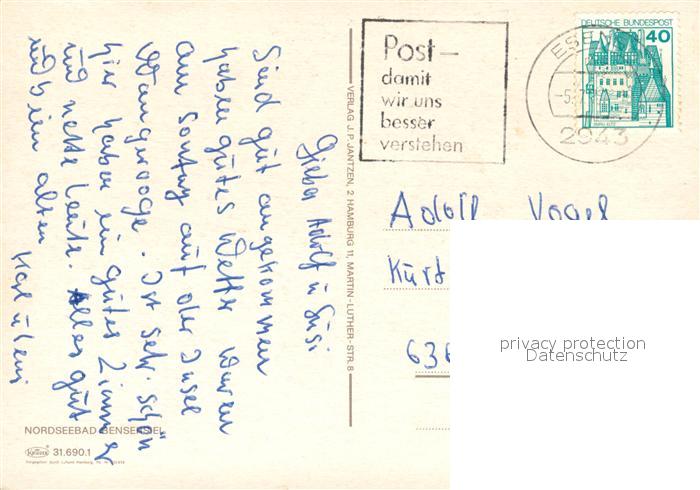 Lieber Adolf u Susi
Sind gut angekommen
haben gutes Wetter waren
am Sontag auf der Insel
Wangerooge. Ist sehr schön
hier haben ein gutes Zimmer
und nette Leute. Alles gut
und beim alten
Karl u Leni
Post–
damit
wir uns
besser
verstehen
DEUTSCHE BUNDESPOST
40
ESENS
2943
VERLAG J. P. JANTZEN, 2 HAMBURG 11, MARTIN-LUTHER-STR. 8
Adolf Vogel
Kurt
636
privacy protection
Datenschutz
NORDSEEBAD BENSERSIEL
Krüger 31.690.1